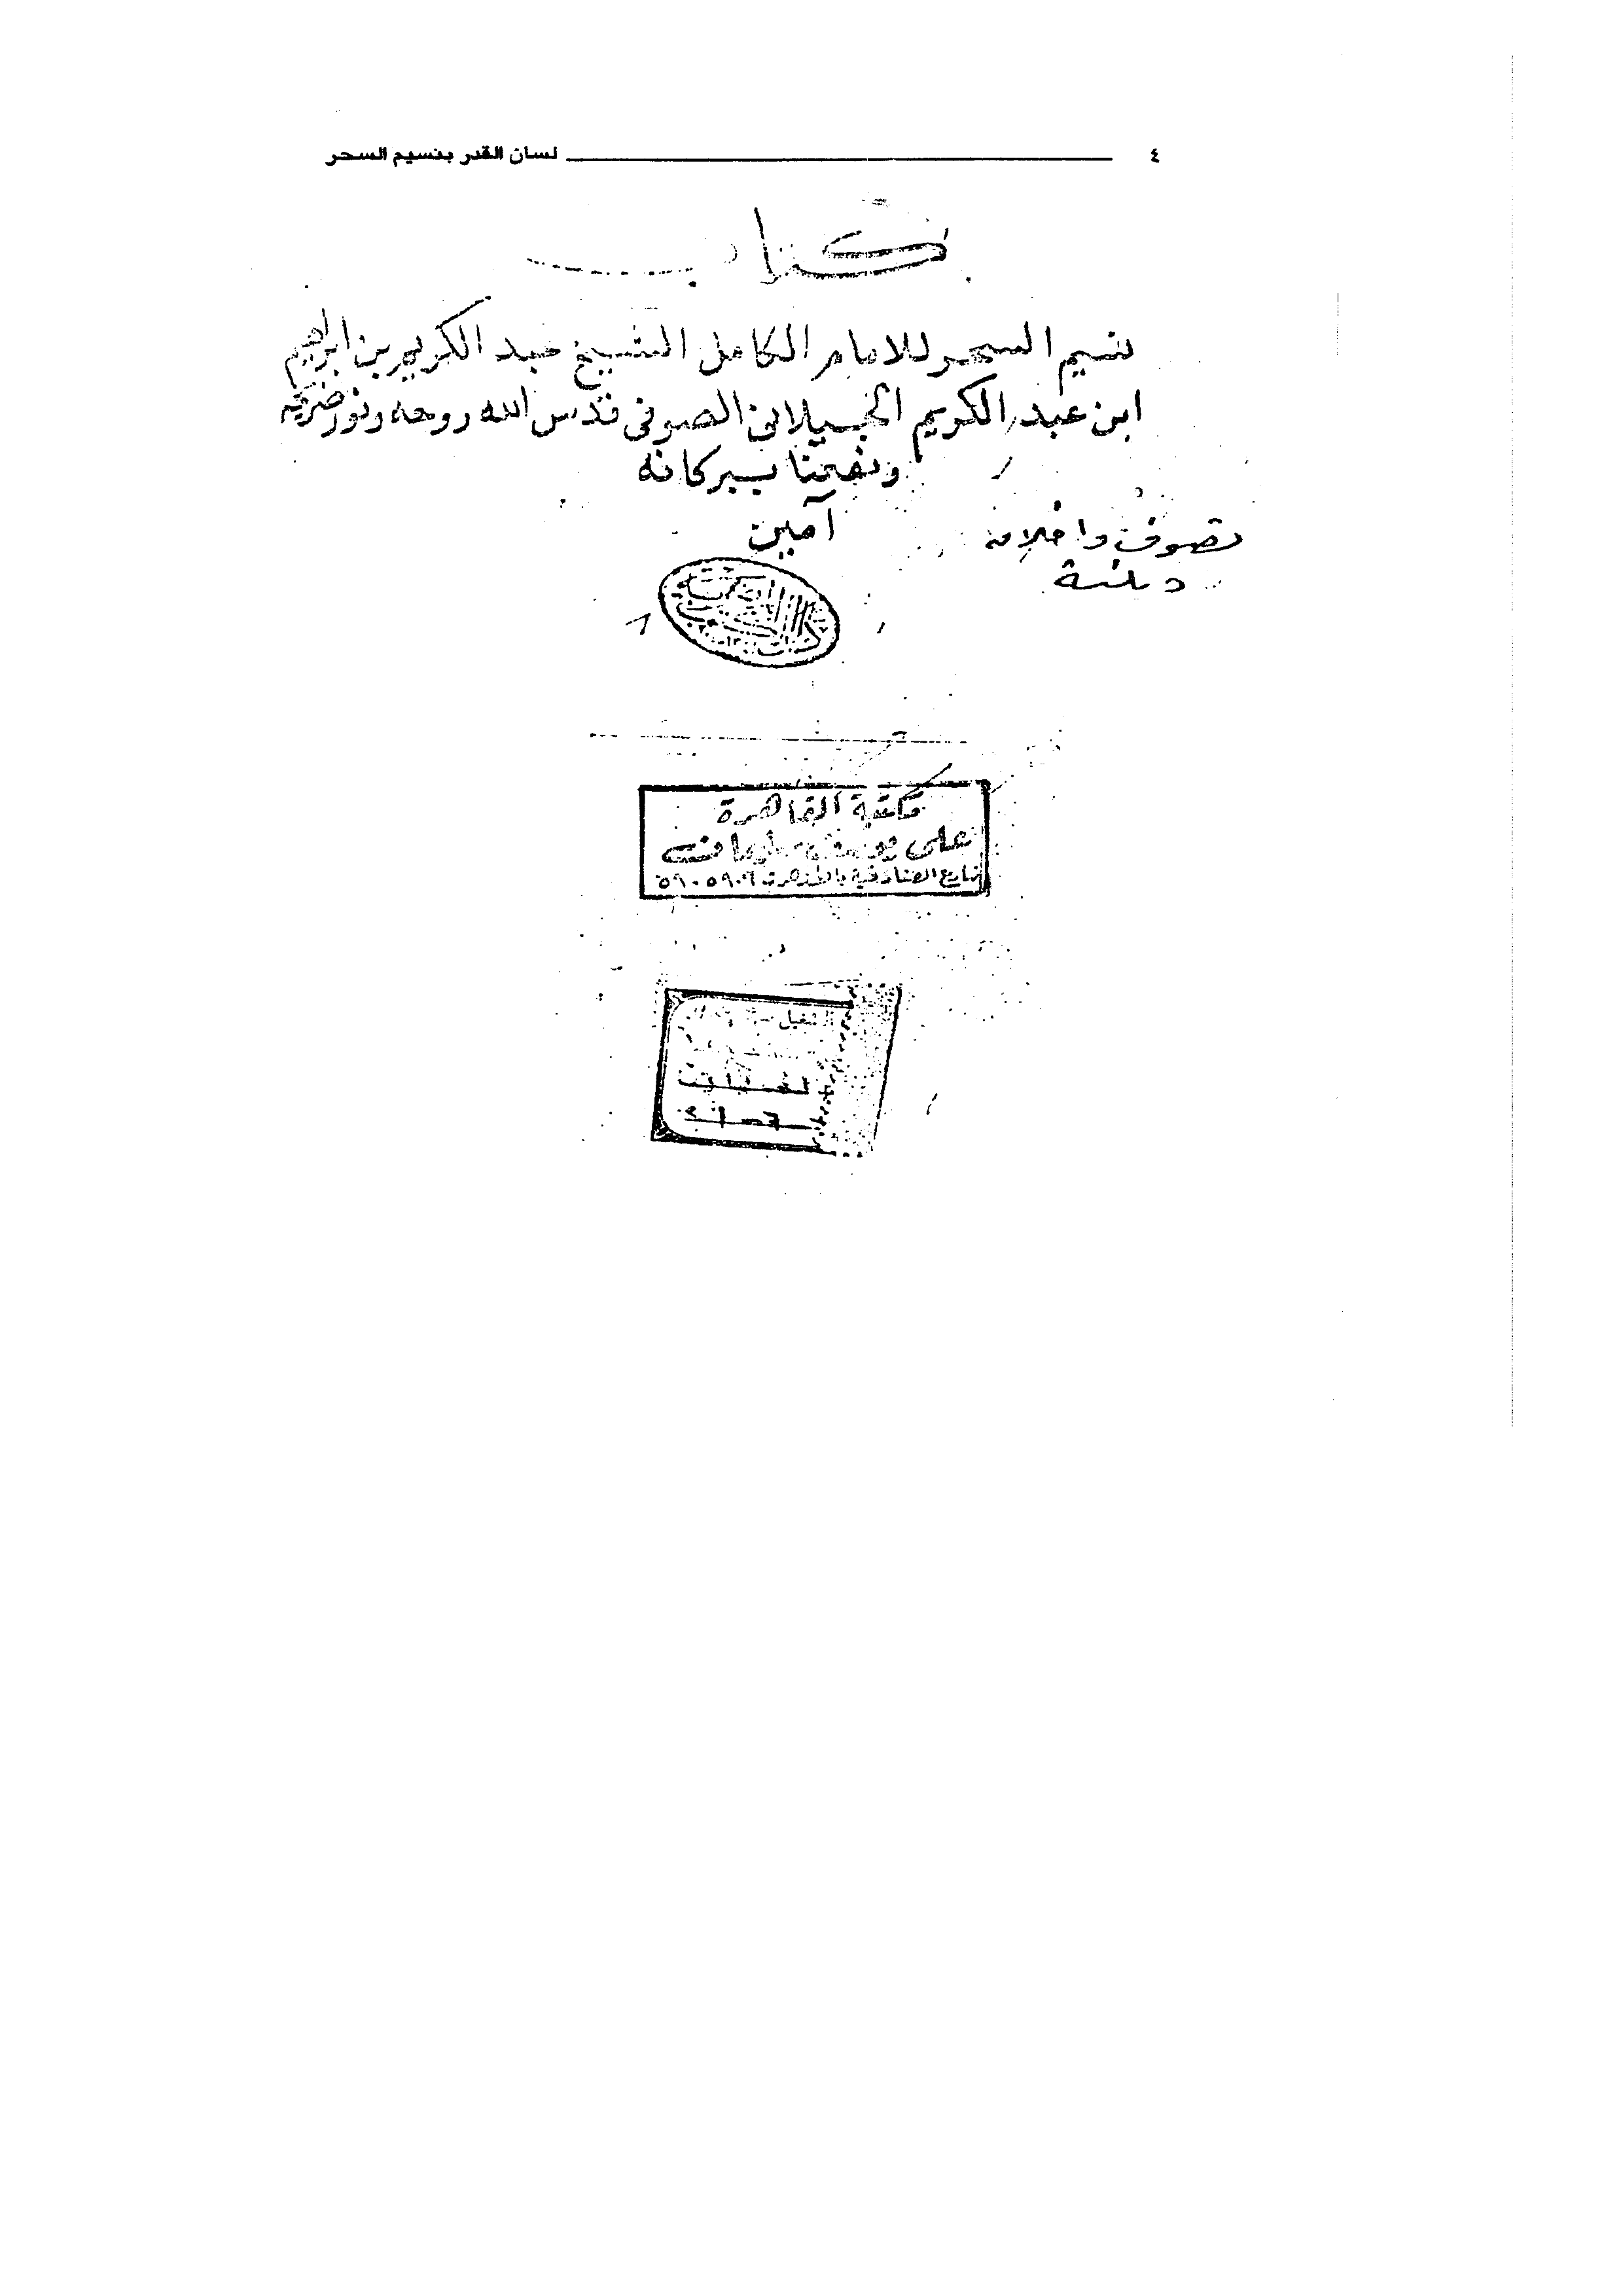 ٤ لسان القدر بنسيم السحر
كتاب
نسيم السحر للامام الكامل الشيخ عبد الكريم بن ابراهيم
ابن عبد الكريم الجيلانى الصوفى قدس الله روحه ونور ضريحه
ونفعنا ببركاته
آمين
تصوف واخلاق
دينية
مكتبة القاهرة
على يوسف سليمان
شارع الصنادقية بالأزهر ت ٥٩٠٥٩٠٩